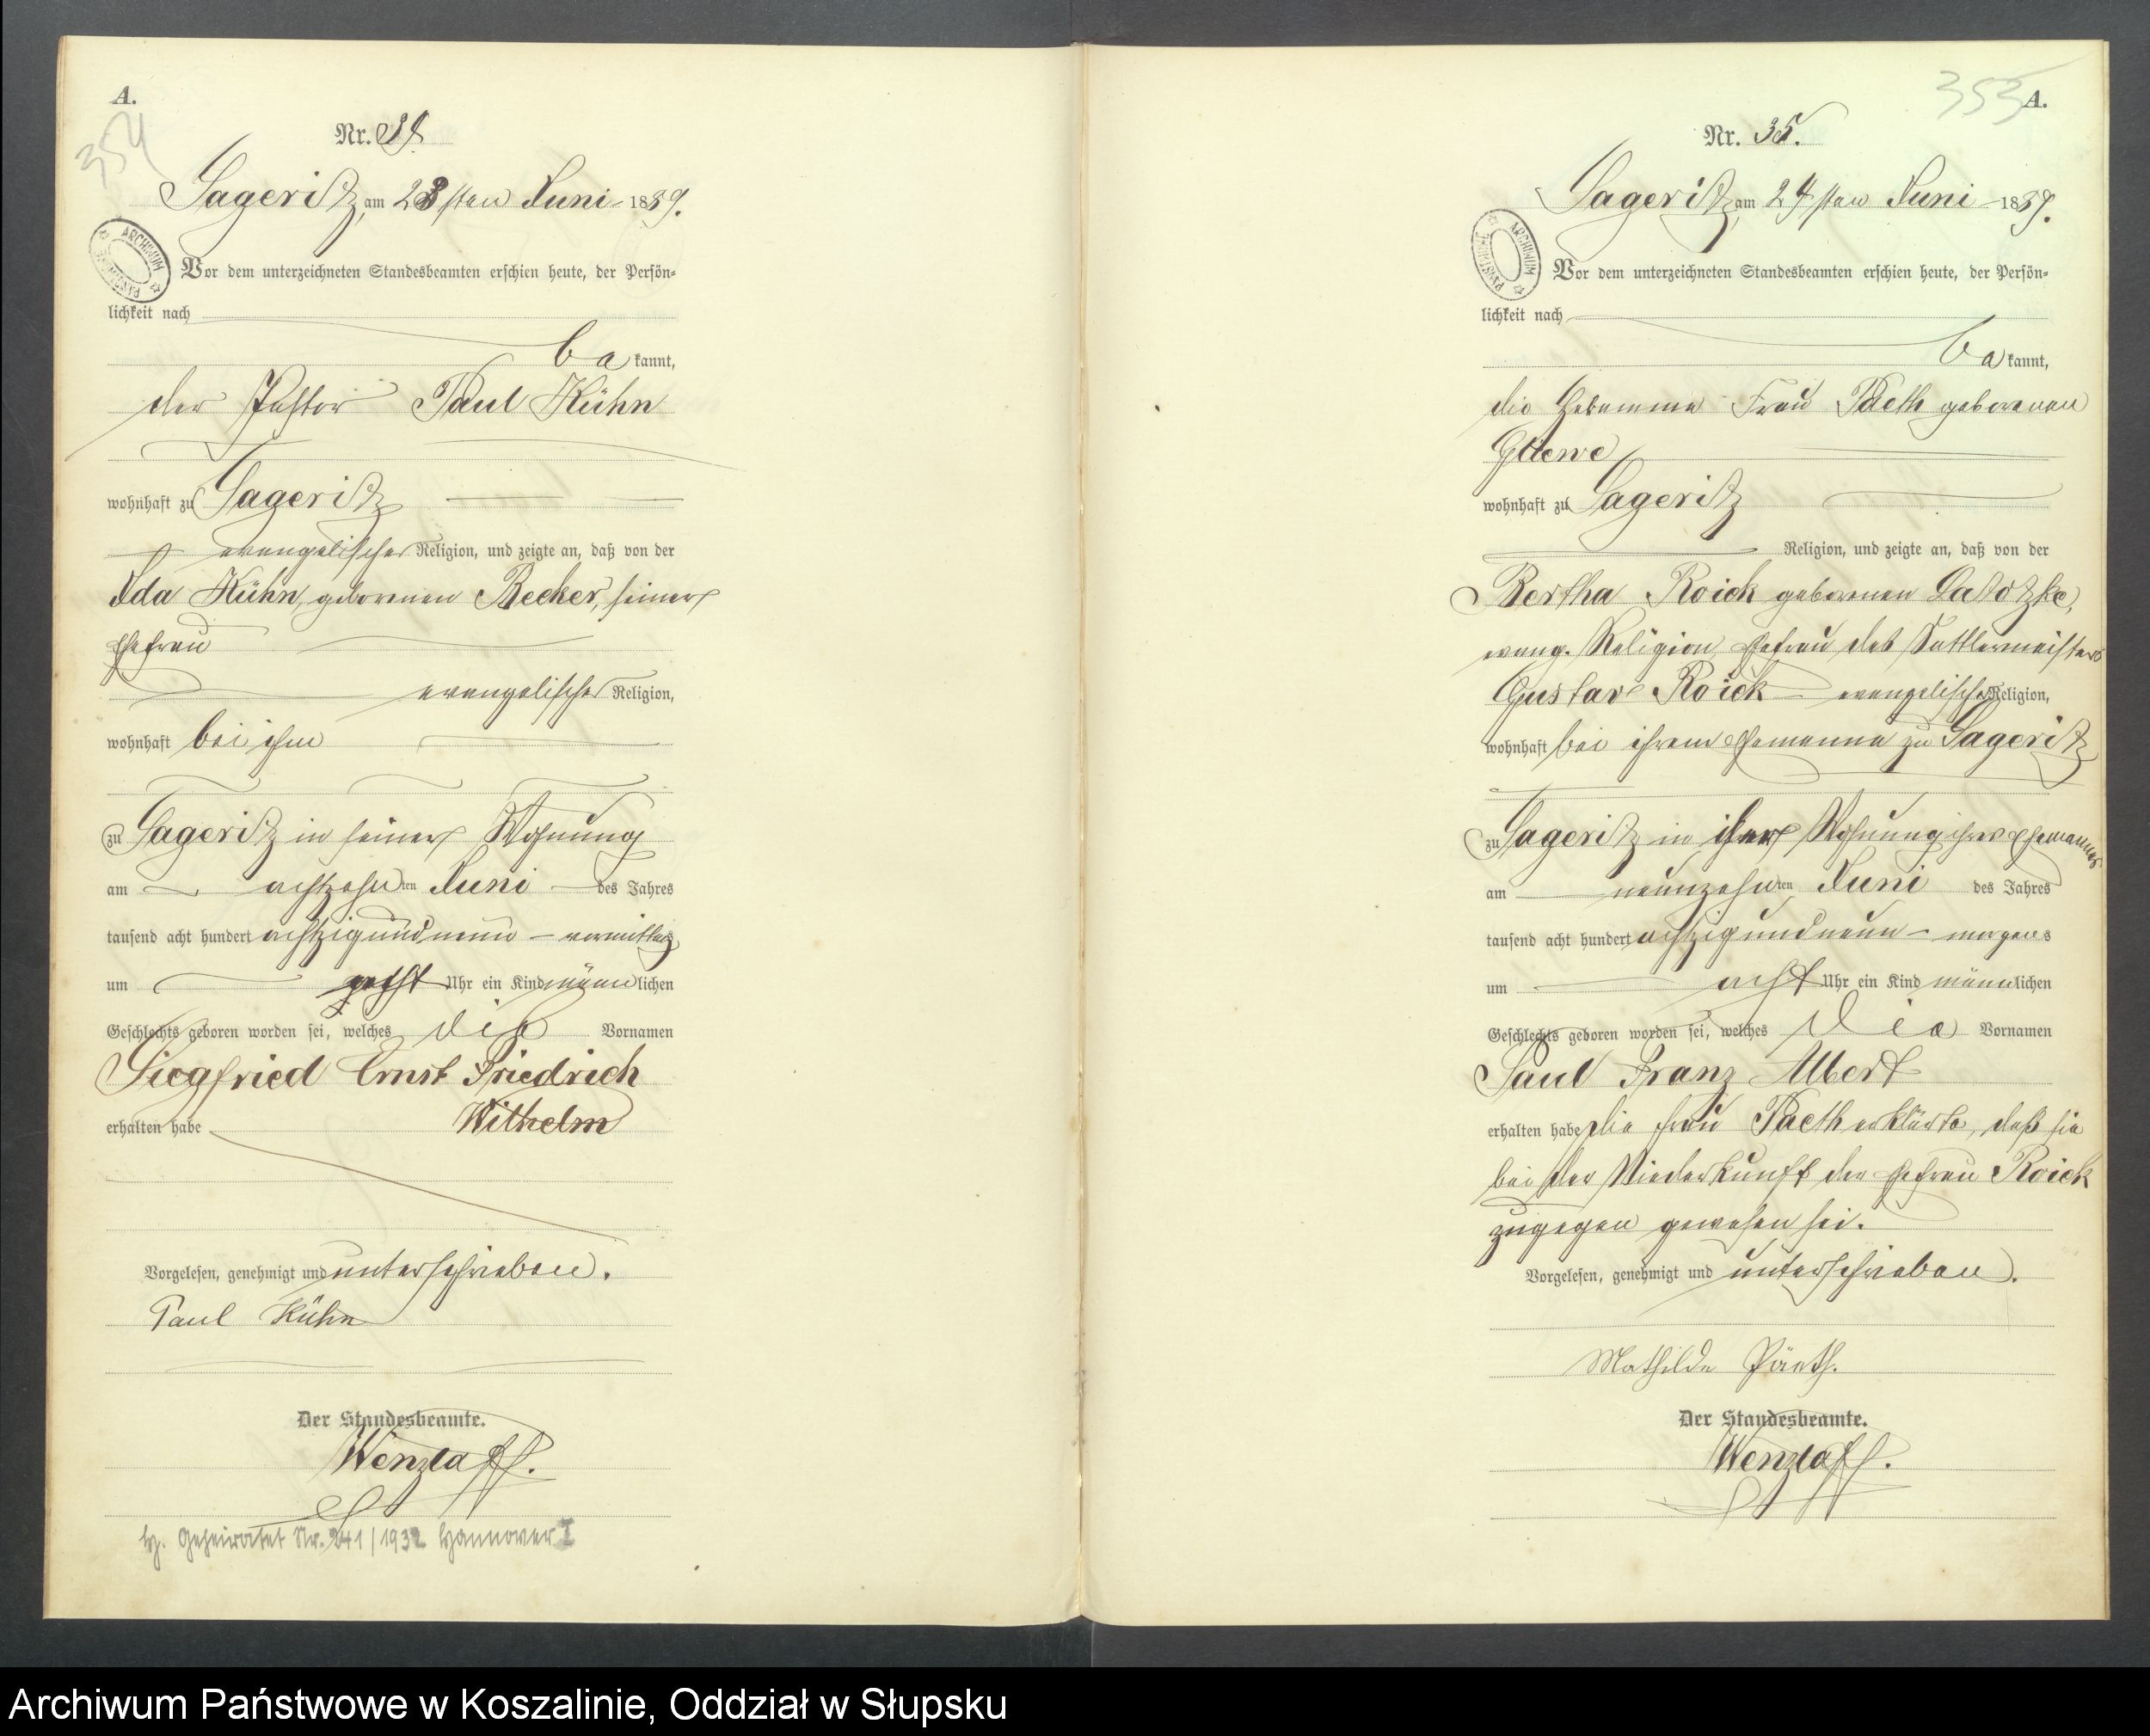 A.
354
Nr. 34.
Sageritz, am 23sten Juni 1889.
ARCHIWUM PAŃSTWOWE
Vor dem unterzeichneten Standesbeamten erschien heute, der Persön-
lichkeit nach
be kannt,
der Pastor Paul Kühn
wohnhaft zu Sageritz
evangelischer Religion, und zeigte an, daß von der
Ida Kühn, gebornen Becker, seiner
Ehefrau
evangelischer Religion,
wohnhaft bei ihm
zu Sageritz in seiner Wohnung
am achtzehnten Juni des Jahres
tausend acht hundert achtzig und neun – vormittags
um Uhr ein Kind männlichen
Geschlechts geboren worden sei, welches die Vornamen
Siegfried Ernst Friedrich
Wilhelm
erhalten habe
Vorgelesen, genehmigt und unterschrieben.
Paul Kühn
Der Standesbeamte.
Wenzlaff.
H. Geheiratet Nr. 241/1932 Hannover I
353
A.
Nr. 35.
Sageritz, am 24sten Juni 1889.
ARCHIWUM PAŃSTWOWE
Vor dem unterzeichneten Standesbeamten erschien heute, der Persön-
lichkeit nach
be kannt,
die Hebamme Frau Paeth geborenen
Gliewe
wohnhaft zu Sageritz
Religion, und zeigte an, daß von der
Bertha Roick gebornen Latotzke,
evang. Religion, Ehefrau des Sattlermeisters
Gustav Roick – evangelischer Religion,
wohnhaft bei ihrem Ehemanne zu Sageritz
zu Sageritz in der Wohnung ihres Ehemannes
am neunzehnten Juni des Jahres
tausend acht hundert achtzig und neun – morgens
um acht Uhr ein Kind männlichen
Geschlechts geboren worden sei, welches die Vornamen
Paul Franz Albert
erhalten habe die Frau Paeth erklärte, daß sie
bei der Niederkunft der Ehefrau Roick
zugegen gewesen sei.
Vorgelesen, genehmigt und unterschrieben.
Mathilde Päeth.
Der Standesbeamte.
Wenzlaff.
Archiwum Państwowe w Koszalinie, Oddział w Słupsku